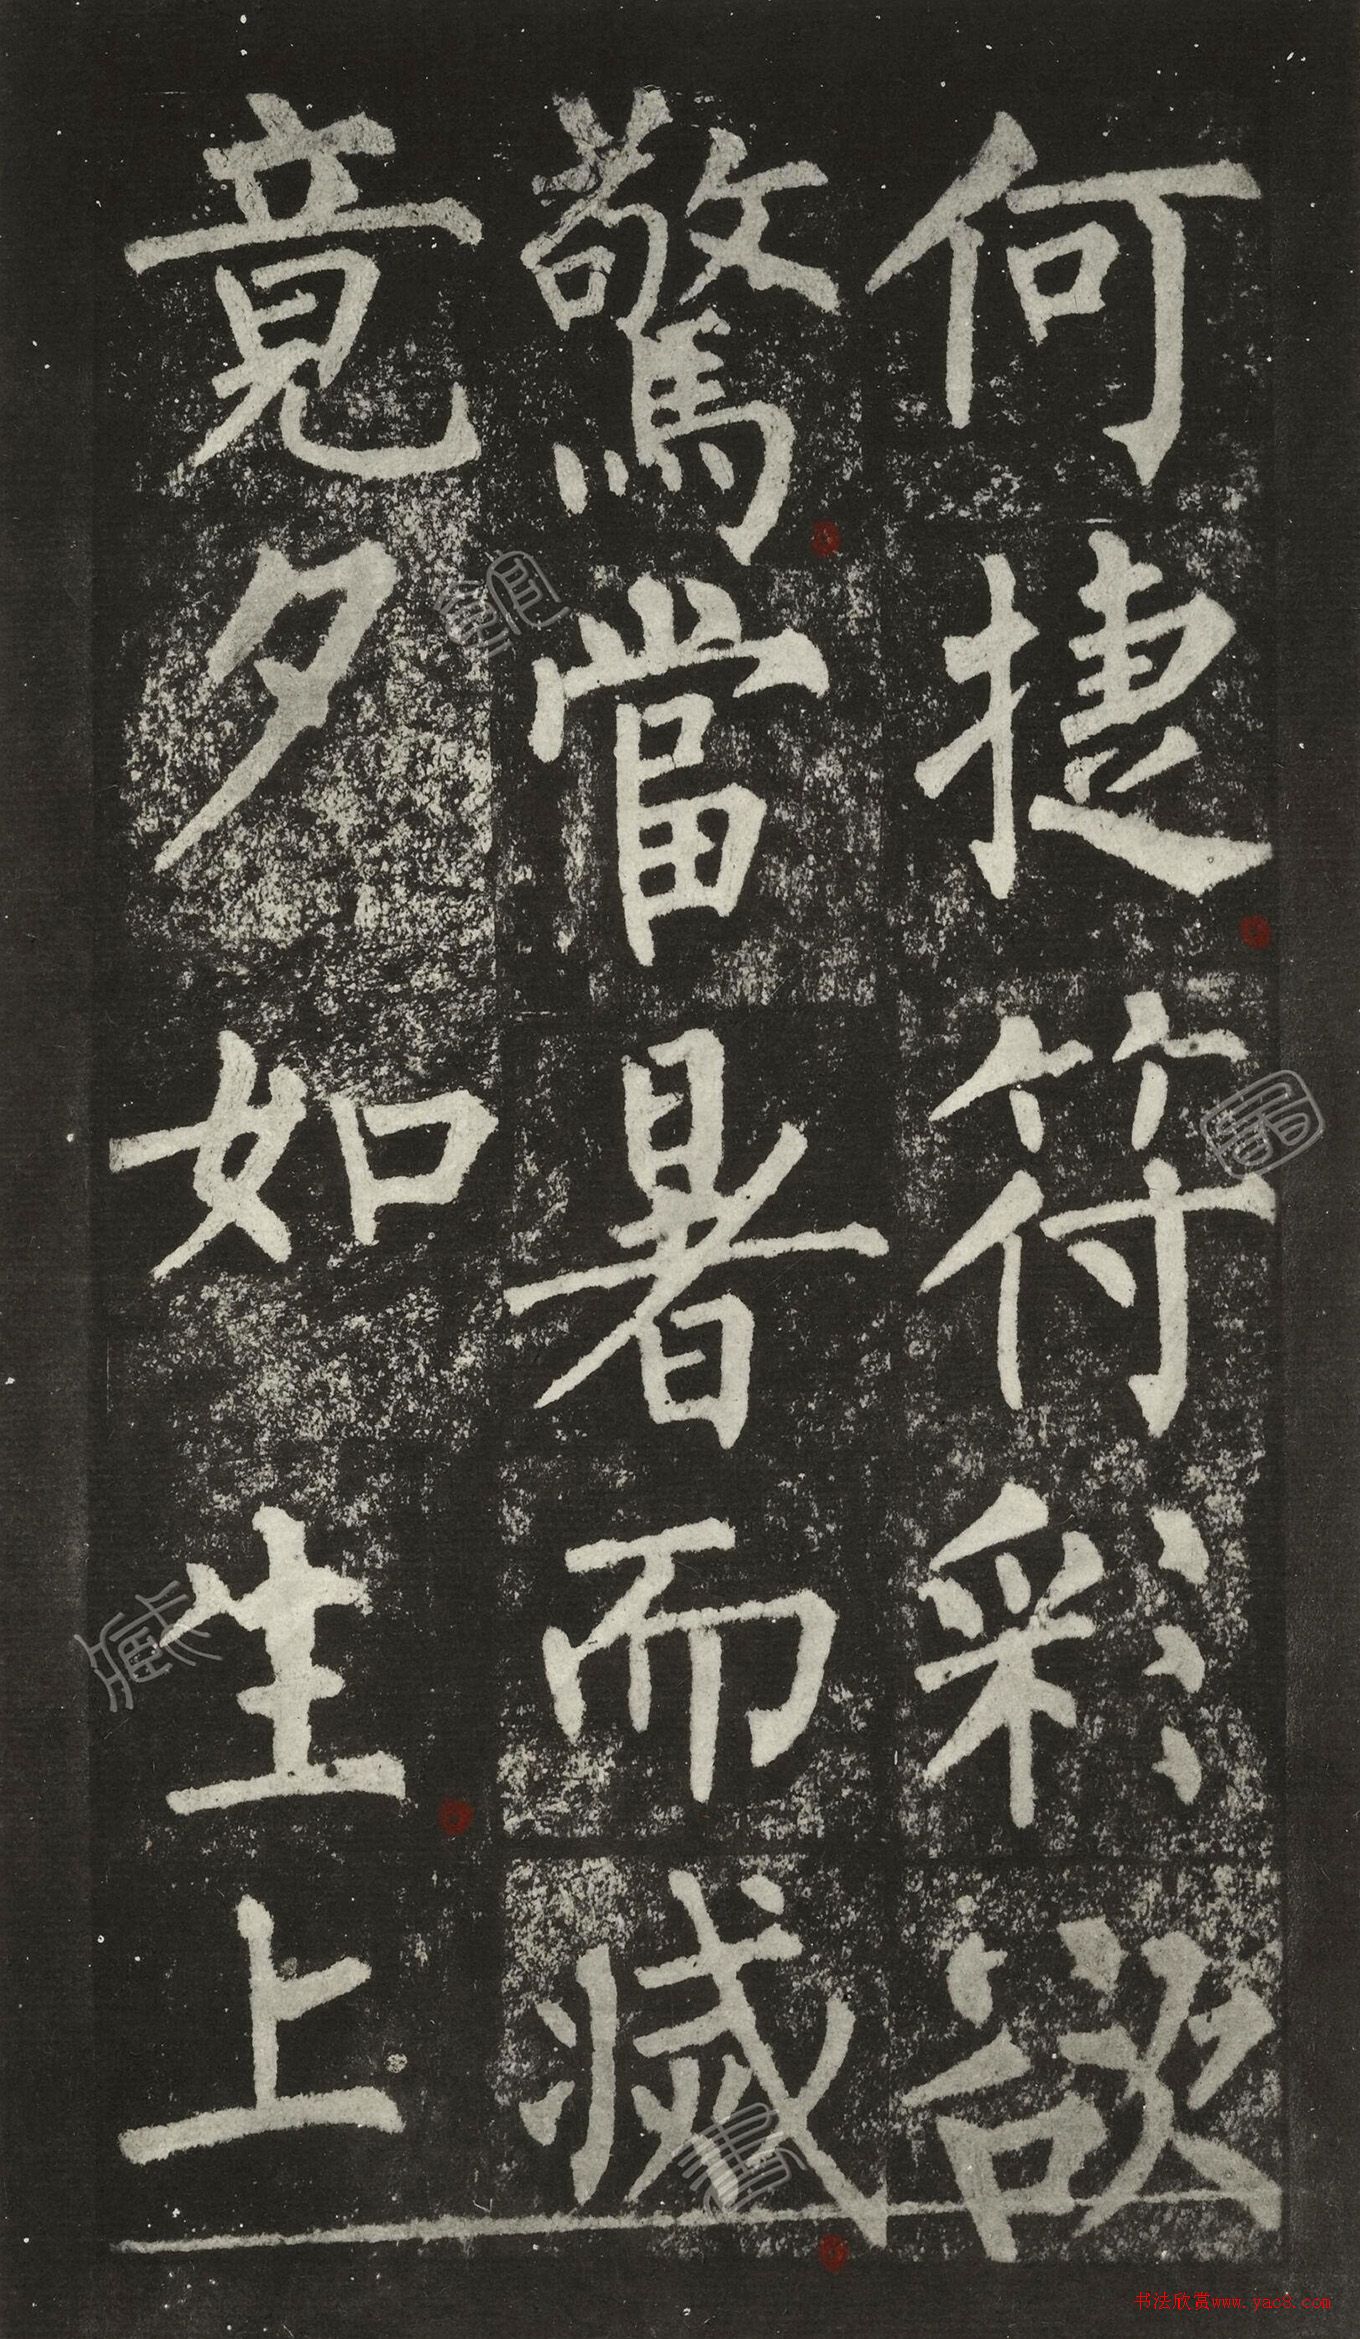 何捷符彩欲
驚當暑而滅
竟夕如生上
书法欣赏www.yac8.com